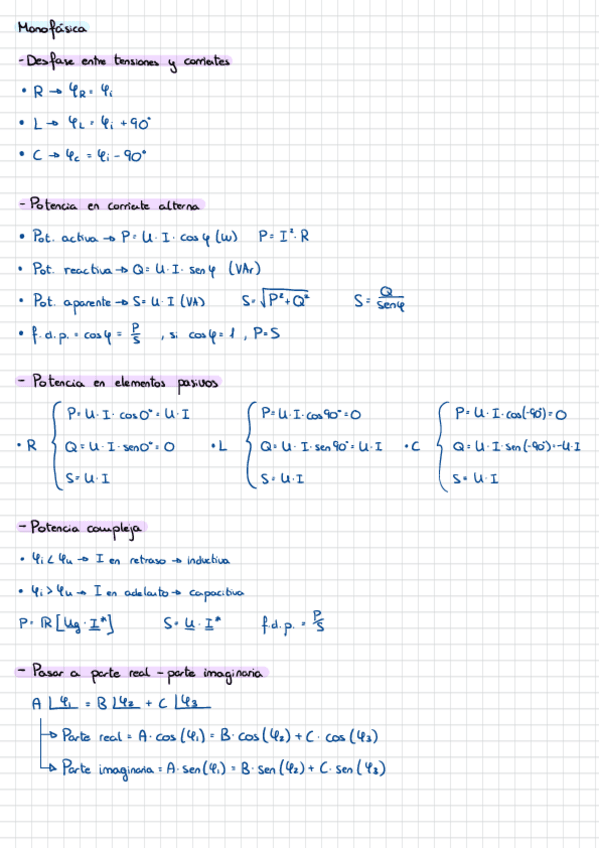 Monofásica
- Desfase entre tensiones y corrientes
• R → φR = φi
• L → φL = φi + 90°
• C → φc = φi - 90°
- Potencia en corriente alterna
• Pot. activa → P = U · I · cos φ (w)   P = I² · R
• Pot. reactiva → Q = U · I · sen φ (VAr)
• Pot. aparente → S = U · I (VA)   S = √(P² + Q²)   S = Q/senφ
• f.d.p. = cos φ = P/S , si cos φ = 1 , P = S
- Potencia en elementos pasivos
• R { P = U · I · cos 0° = U · I
Q = U · I · sen 0° = 0
S = U · I
• L { P = U · I · cos 90° = 0
Q = U · I · sen 90° = U · I
S = U · I
• C { P = U · I · cos(-90°) = 0
Q = U · I · sen(-90°) = -U · I
S = U · I
- Potencia compleja
• φi < φu → I en retraso → inductiva
• φi > φu → I en adelanto → capacitiva
P = ℝ [Ug · I*]   S = U · I*   f.d.p. = P/S
- Pasar a parte real - parte imaginaria
A ∠φ1 = B ∠φ2 + C ∠φ3
→ Parte real = A · cos (φ1) = B · cos (φ2) + C · cos (φ3)
→ Parte imaginaria = A · sen (φ1) = B · sen (φ2) + C · sen (φ3)